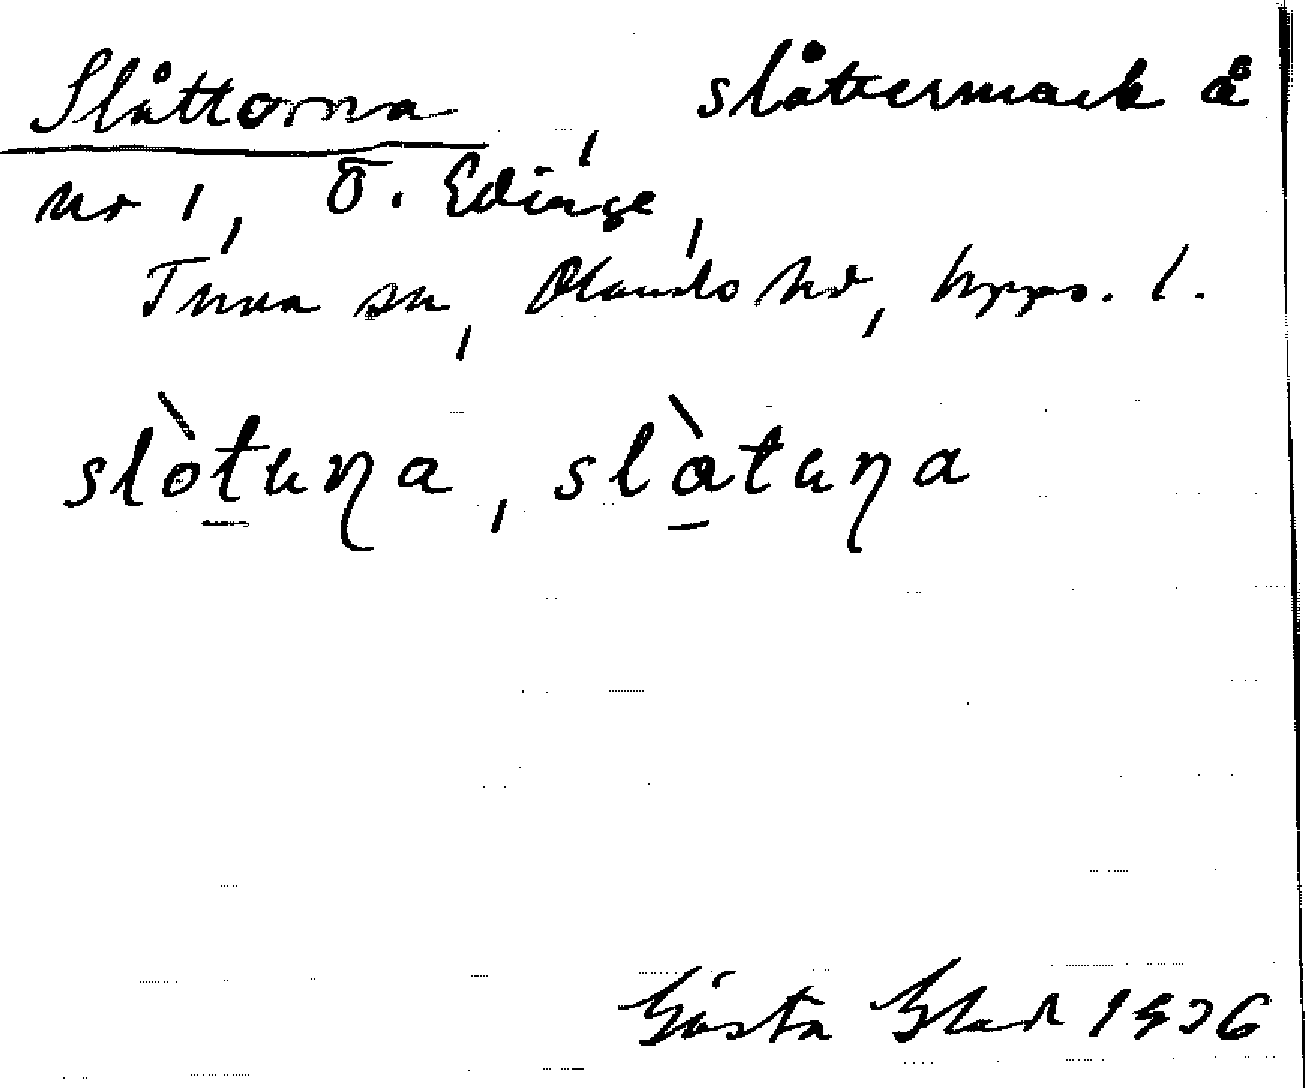 Slåttorna, slåttermark å
nr 1, Ö. Edinge,
Tuna sn, Olands hd, Upps. l.
slòtuṇa, slàtuṇa
Gösta Blad 1936